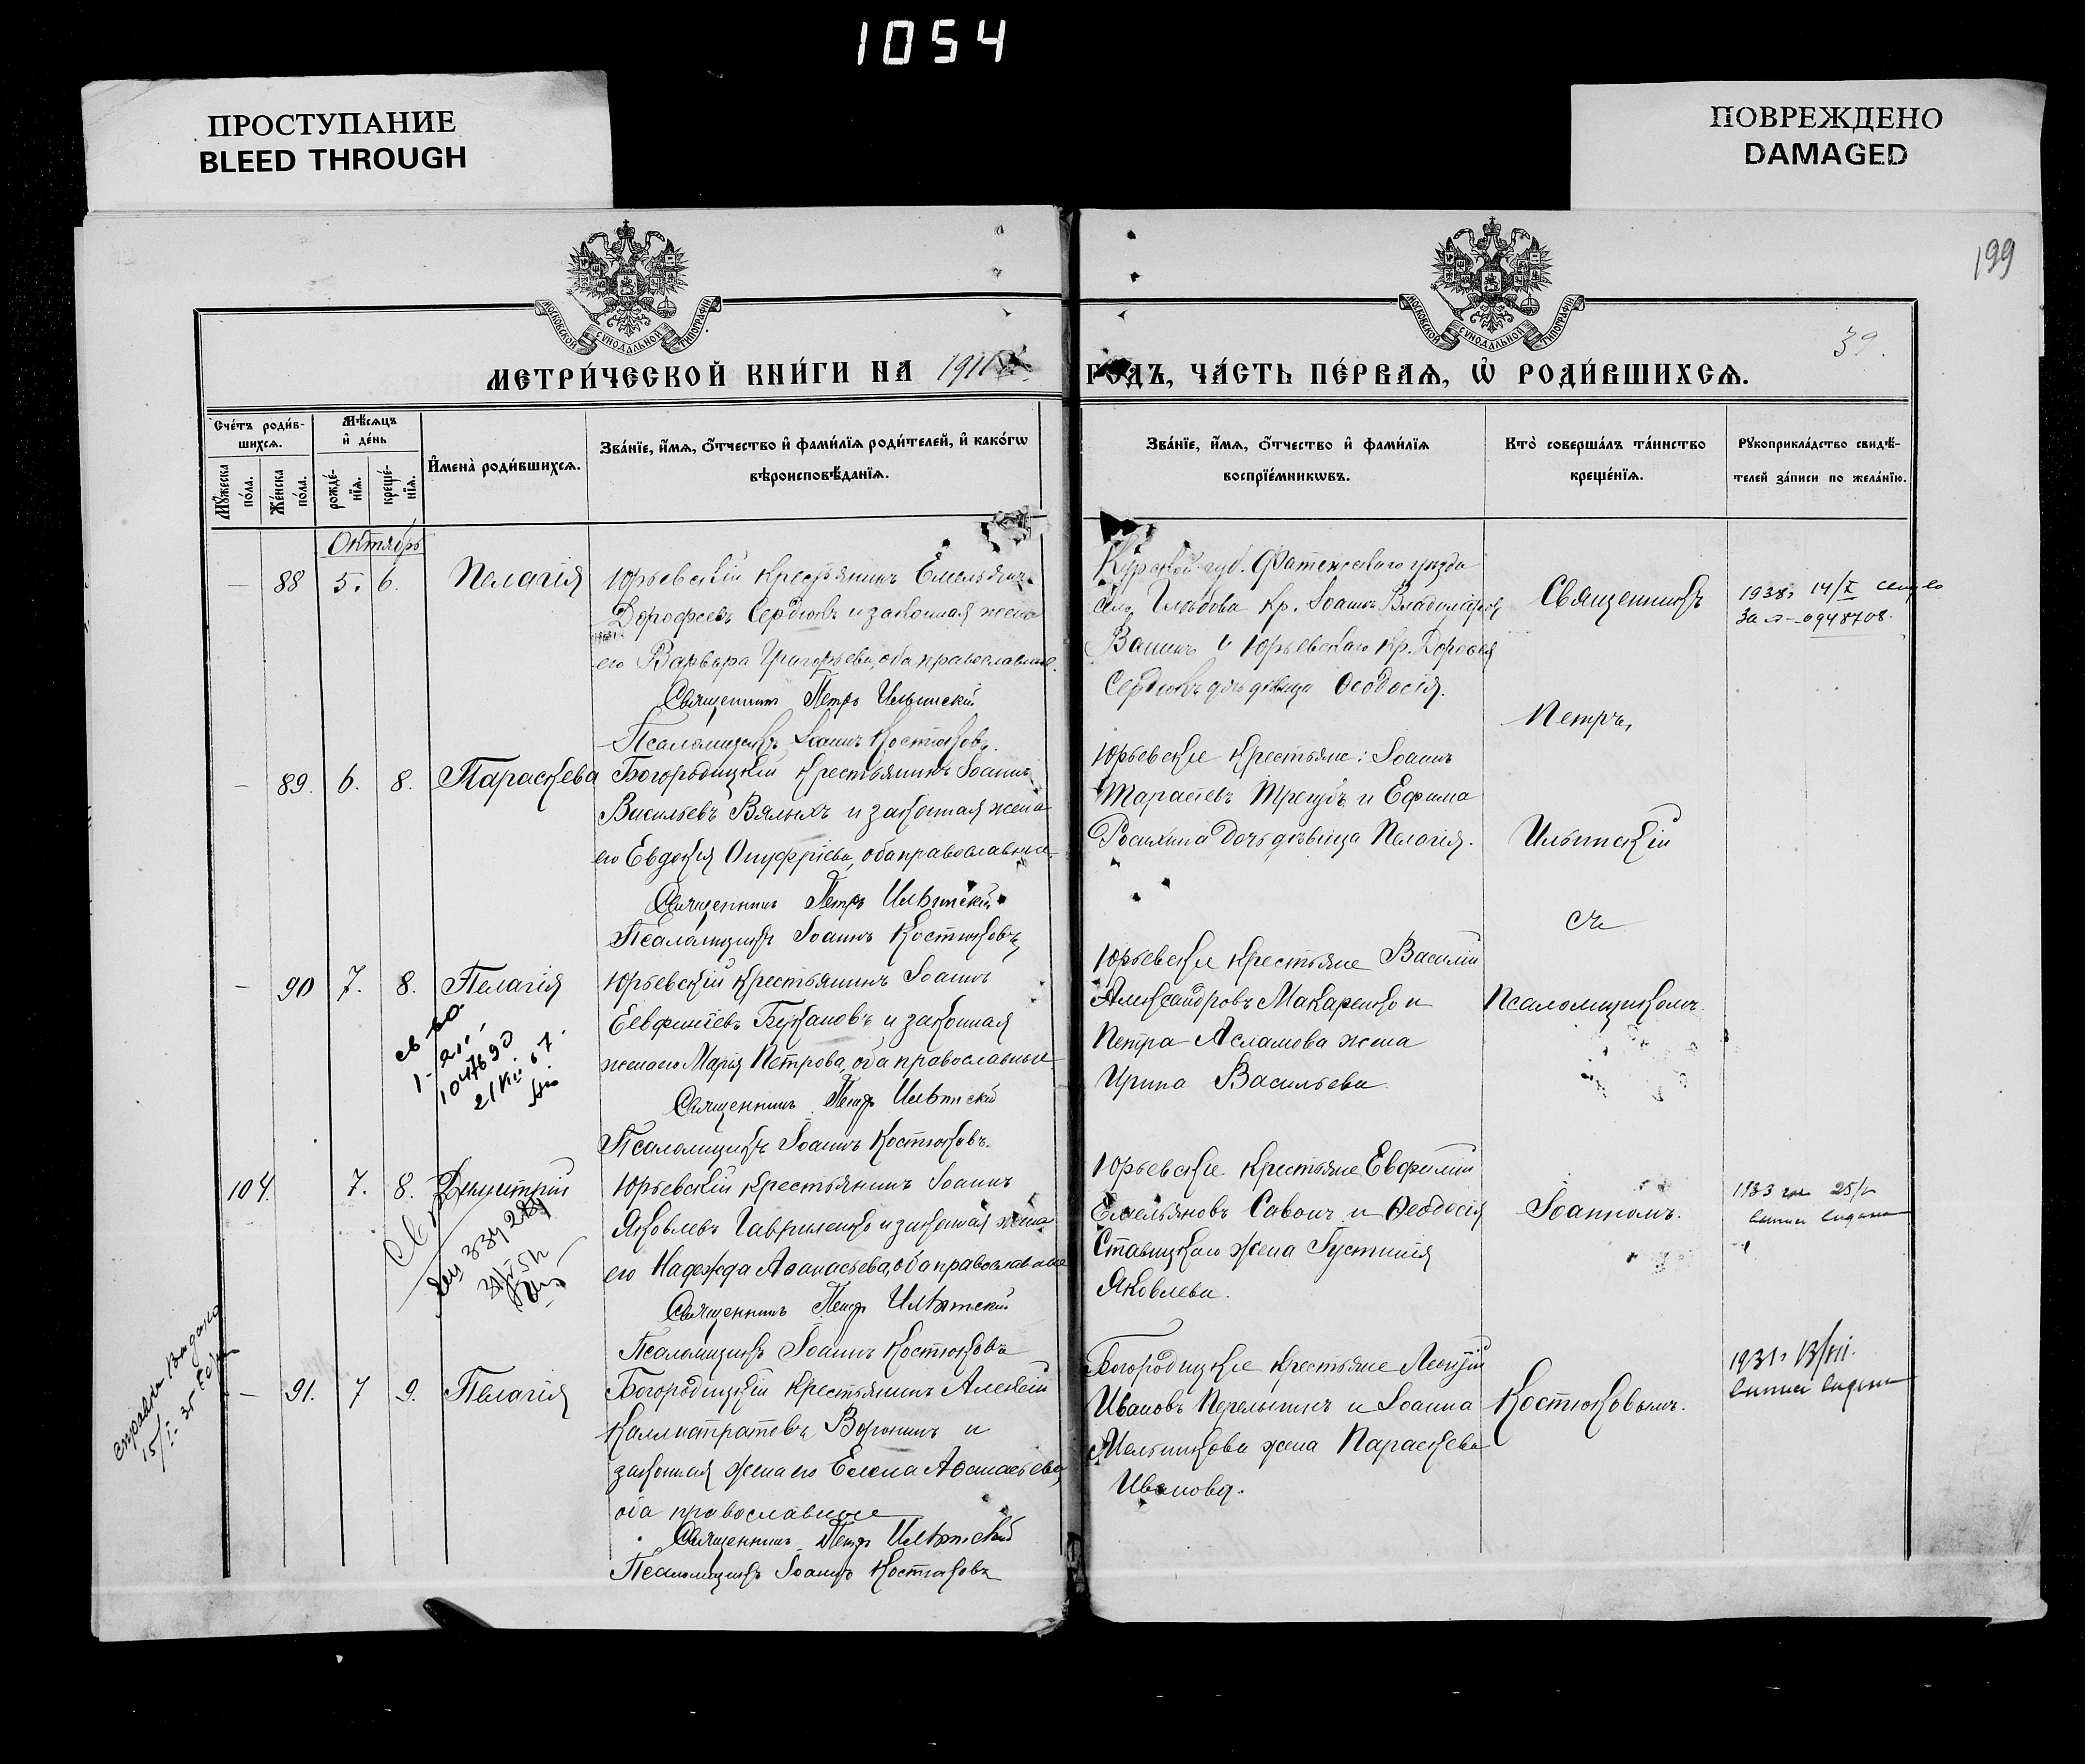 1054
ПРОСТУПАНИЕ
BLEED THROUGH
ПОВРЕЖДЕНО
DAMAGED
199
39.
МОСКОВСКОЙ СѴНОДАЛЬНОЙ ТИПОГРАФІИ
МОСКОВСКОЙ СѴНОДАЛЬНОЙ ТИПОГРАФІИ
МЕТРИ́ЧЕСКОЙ КНИ́ГИ НА 1911
ГОДЪ, ЧА́СТЬ ПЕ́РВАѦ, Ѡ҆ РОДИ́ВШИХСѦ.
Сче́тъ роди́в-
шихсѧ.
Мꙋжеска по́ла.
Же́нска по́ла.
Мѣ́сѧцъ
и҆ де́нь
рожде́-
нїѧ.
креще́-
нїѧ.
И҆мена̀ роди́вшихсѧ.
Зва́нїе, и҆́мѧ, ѻ҆́тчество и҆ фами́лїѧ роди́телей, и҆ како́гѡ
вѣроисповѣ́данїѧ.
Зва́нїе, и҆́мѧ, ѻ҆́тчество и҆ фами́лїѧ
воспрїе́мникѡвъ.
Кто̀ соверша́лъ та́инство
креще́нїѧ.
Рꙋкоприкла́дство свидѣ́-
телей за́писи по жела́нїю.
Октябрь
— 88 5. 6. Пелагія
Юрьевскій крестьянинъ Емельянъ
Дорофеевъ Сердюкъ и законная жена
его Варвара Григорьева, оба православные.
Священникъ Петръ Ильинскій
Псаломщикъ Іоаннъ Костюковъ.
Курской губ. Фатежскаго уѣзда
Іоаннъ Владиміровъ
и Юрьевскаго кр. Дорофея
Сердюкъ дочь дѣвица Ѳеодосія.
Священникъ
1938 14/X
0948708.
Петръ,
— 89. 6. 8. Параскева
Богородицкій крестьянинъ Іоаннъ
Васильевъ Вялыхъ и законная жена
его Евдокія Онуфріева, оба православные
Священникъ Петръ Ильинскій
Псаломщикъ Іоаннъ Костюковъ
Юрьевскіе крестьяне: Іоаннъ
Тарасіевъ Трегубъ и Ефима
дочь дѣвица Пелагія.
Ильинскій
съ
— 90 7. 8. Пелагія
Юрьевскій крестьянинъ Іоаннъ
Евфиміевъ Букановъ и законная
жена его Марія Петрова, оба православные
Священникъ Петръ Ильинскій
Псаломщикъ Іоаннъ Костюковъ.
Юрьевскіе крестьяне Василій
Александровъ Макаренко и
Петра Асламова жена
Ирина Васильева
Псаломщикомъ
104. 7. 8. Димитрій
Юрьевскій крестьянинъ Іоаннъ
Яковлевъ Гавриленко и законная жена
его Надежда Аѳанасьева, оба православные
Священникъ Петръ Ильинскій
Псаломщикъ Іоаннъ Костюковъ
Юрьевскіе крестьяне Евфимій
Емельяновъ Савонъ и Ѳеодосія
Ставицкаго жена Іустинія
Яковлева.
Іоанномъ.
1933
справка выдана
— 91. 7 9. Пелагія
Богородицкій крестьянинъ Алексій
Каллистратовъ Воронинъ и
законная жена его Елена Аѳанасьева,
оба православные
Священникъ Петръ Ильинскій
Псаломщикъ Іоаннъ Костюковъ
Богородицкіе крестьяне Леонтій
Ивановъ Перелыгинъ и Іоанна
Мельникова жена Параскева
Иванова.
Костюковымъ.
1931